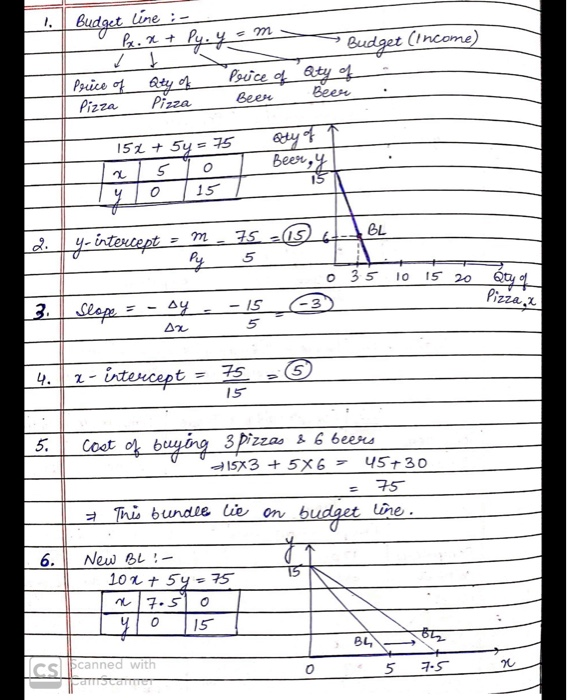 1. Budget line :-
Px. x + Py. y = m
Budget (Income)
Price of Pizza
Qty of Pizza
Price of Beer
Qty of Beer
15x + 5y = 75
x 5 0
y 0 15
Qty of Beer, y
15
6
BL
0 3 5 10 15 20
Qty of Pizza, x
2. y-intercept = m/Py = 75/5 = 15
3. Slope = - Δy/Δx = -15/5 = -3
4. x-intercept = 75/15 = 5
5. Cost of buying 3 pizzas & 6 beers
⇒ 15x3 + 5x6 = 45+30
= 75
⇒ This bundle lie on budget line.
6. New BL :-
10x + 5y = 75
x 7.5 0
y 0 15
y
15
BL1 → BL2
0 5 7.5 x
CS Scanned with
CamScanner